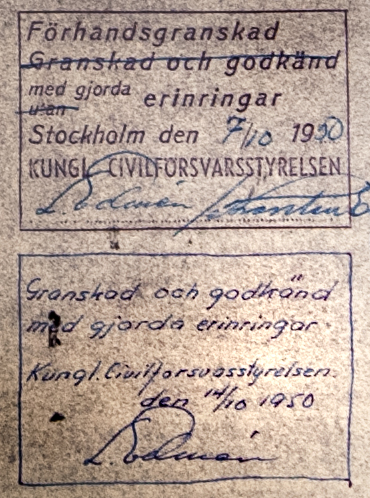 Förhandsgranskad
Granskad och godkänd
med gjorda
utan erinringar
Stockholm den 7/10 1950
KUNGL. CIVILFÖRSVARSSTYRELSEN
Granskad och godkänd
med gjorda erinringar.
Kungl. Civilförsvarsstyrelsen.
den 14/10 1950